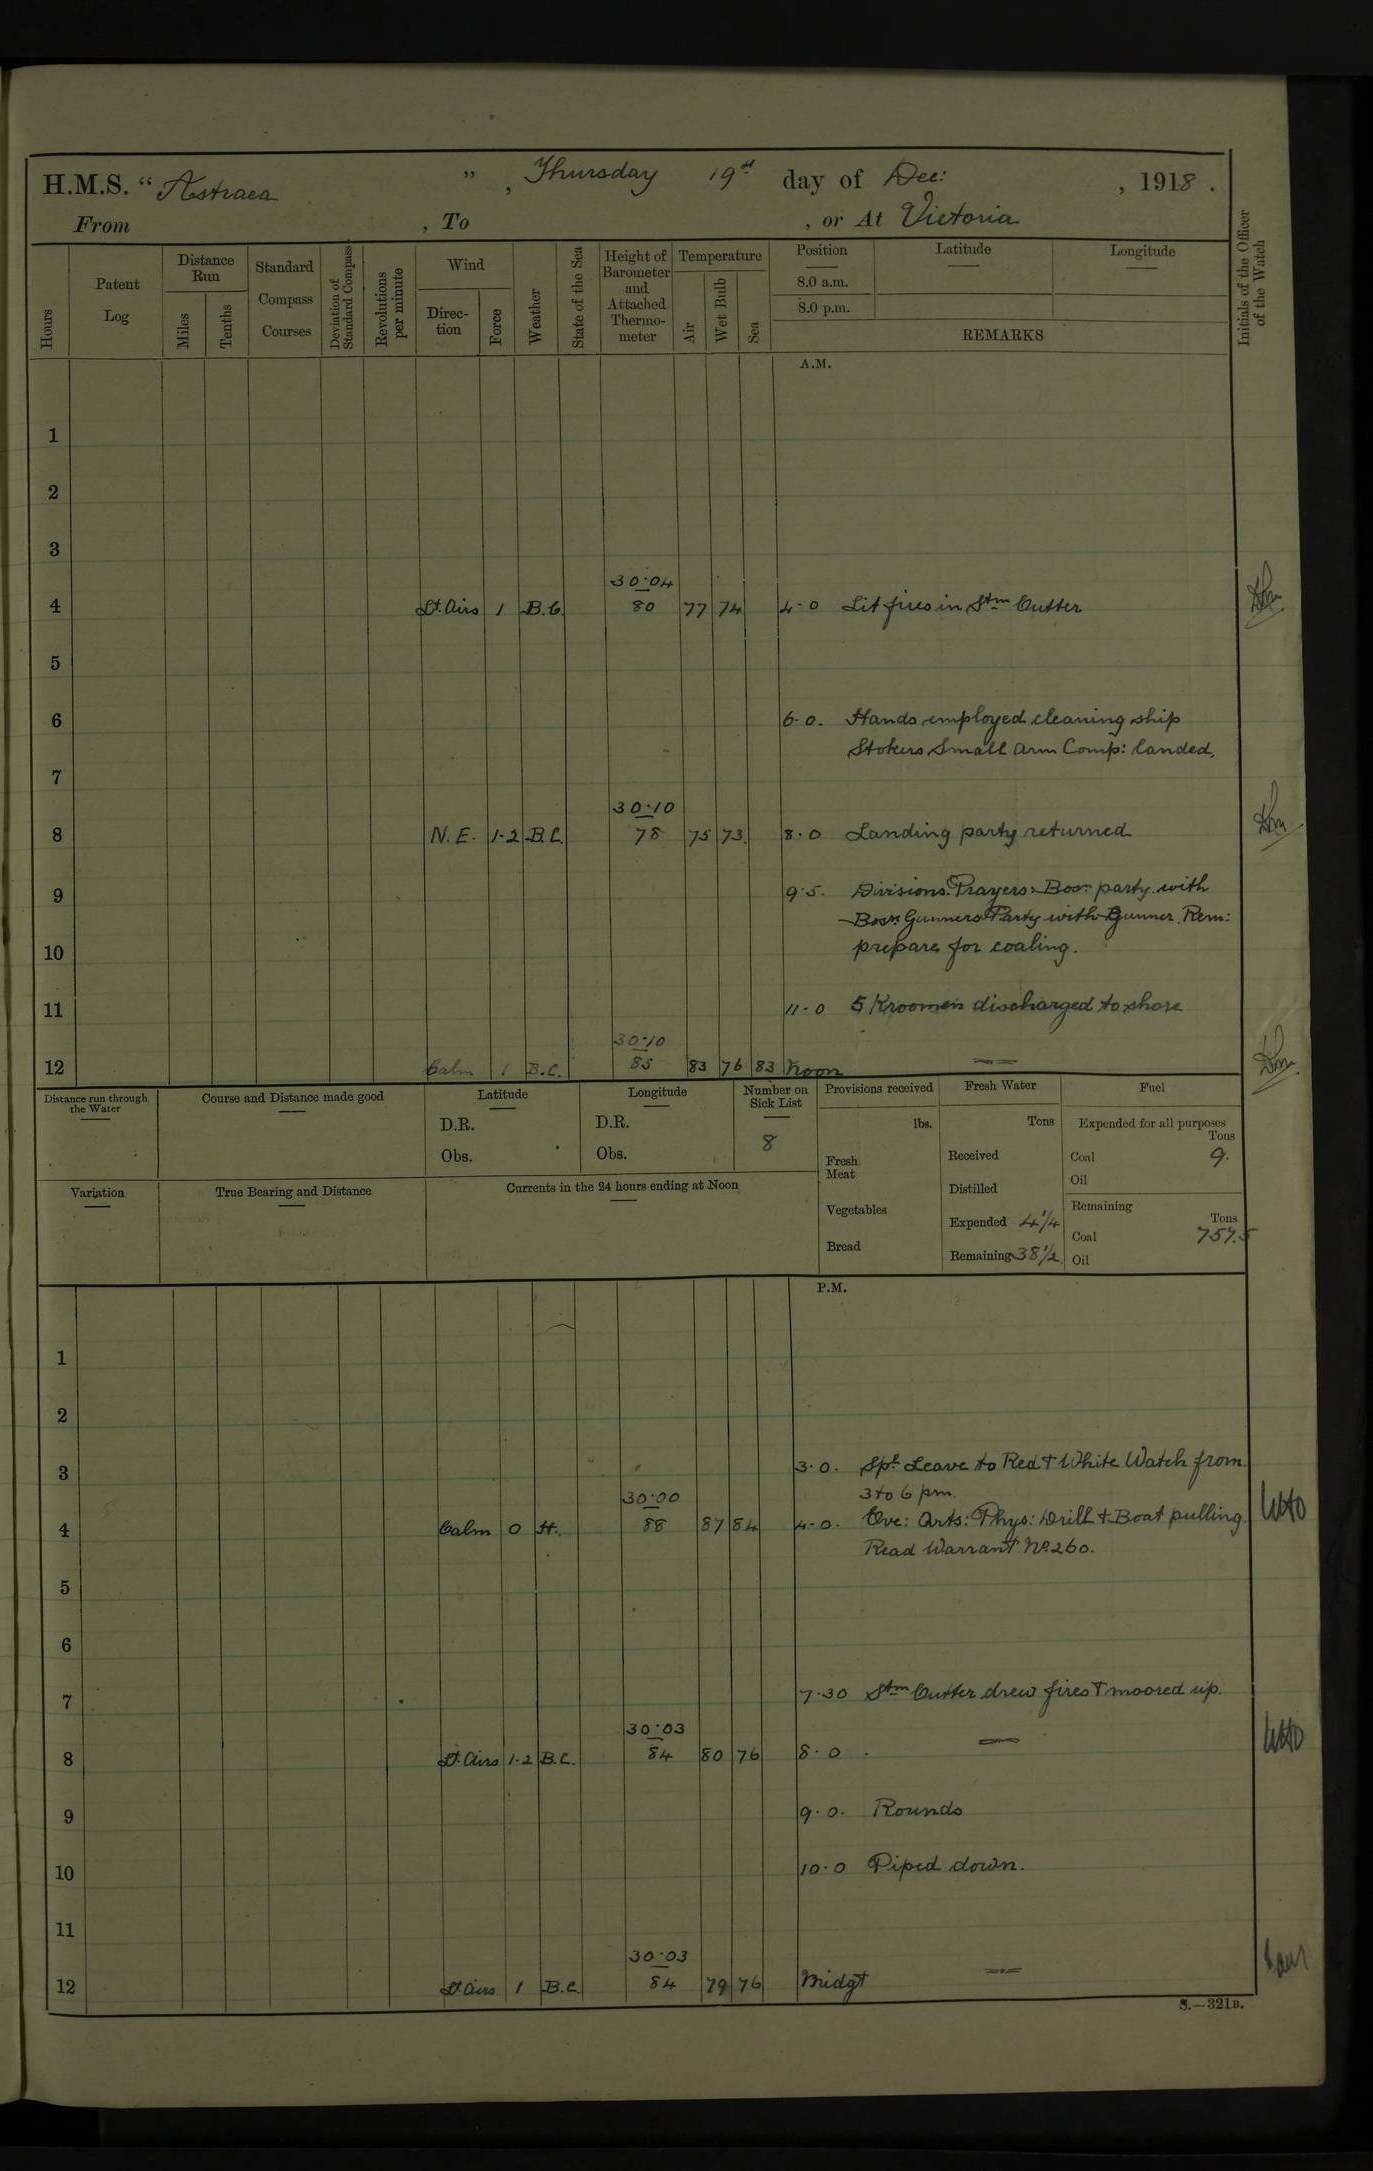 H.M.S. “ Astraea ” , Thursday 19th day of Dec: , 1918 .
From , To , or At Victoria
Hours
Patent Log
Distance Run
Miles
Tenths
Standard Compass Courses
Deviation of Standard Compass
Revolutions per minute
Wind
Direc-tion
Force
Weather
State of the Sea
Height of Barometer and Attached Thermo-meter
Temperature
Air
Wet Bulb
Sea
Position
8.0 a.m.
8.0 p.m.
Latitude
Longitude
REMARKS
Initials of the Officer of the Watch
A.M.
1
2
3
30·04
4 Lt. Airs 1 B.C. 80 77 74 4-0 Lit fires in Stm Cutter
5
6 6·0. Hands employed cleaning ship
Stokers Small Arm Comp: landed.
7
30·10
8 N.E. 1·2 B.C. 78 75 73. 8·0 Landing party returned
9 9·5. Divisions. Prayers. Bosn party with
Bosn. Gunners Party with Gunner. Rem:
10 prepare for coaling.
11 11-0 5 Kroomen discharged to shore
30·10
12 Calm 1 B.C. 85 83 76 83 Noon
Distance run through the Water
Course and Distance made good
Latitude
D.R.
Obs.
Longitude
D.R.
Obs.
Number on Sick List
8
Provisions received
lbs.
Fresh Meat
Vegetables
Bread
Fresh Water
Tons
Received
Distilled
Expended 4 1/4
Remaining 38 1/2
Fuel
Expended for all purposes
Tons
Coal 9.
Oil
Remaining
Tons
Coal 757.5
Oil
Variation
True Bearing and Distance
Currents in the 24 hours ending at Noon
P.M.
1
2
3 3·0. Spl Leave to Red & White Watch from
3 to 6 pm.
30·00
4 Calm 0 88 87 84 4-0. Eve: Qrts: Phys: Drill & Boat pulling.
Read Warrant No. 260.
5
6
7 7·30 Stm Cutter drew fires & moored up.
30·03
8 Lt. Airs 1·2 B.C. 84 80 76 8·0
9 9·0. Rounds
10 10·0 Piped down.
11
30·03
12 Lt. Airs 1 B.C. 84 79 76 Midgt
S.—321B.